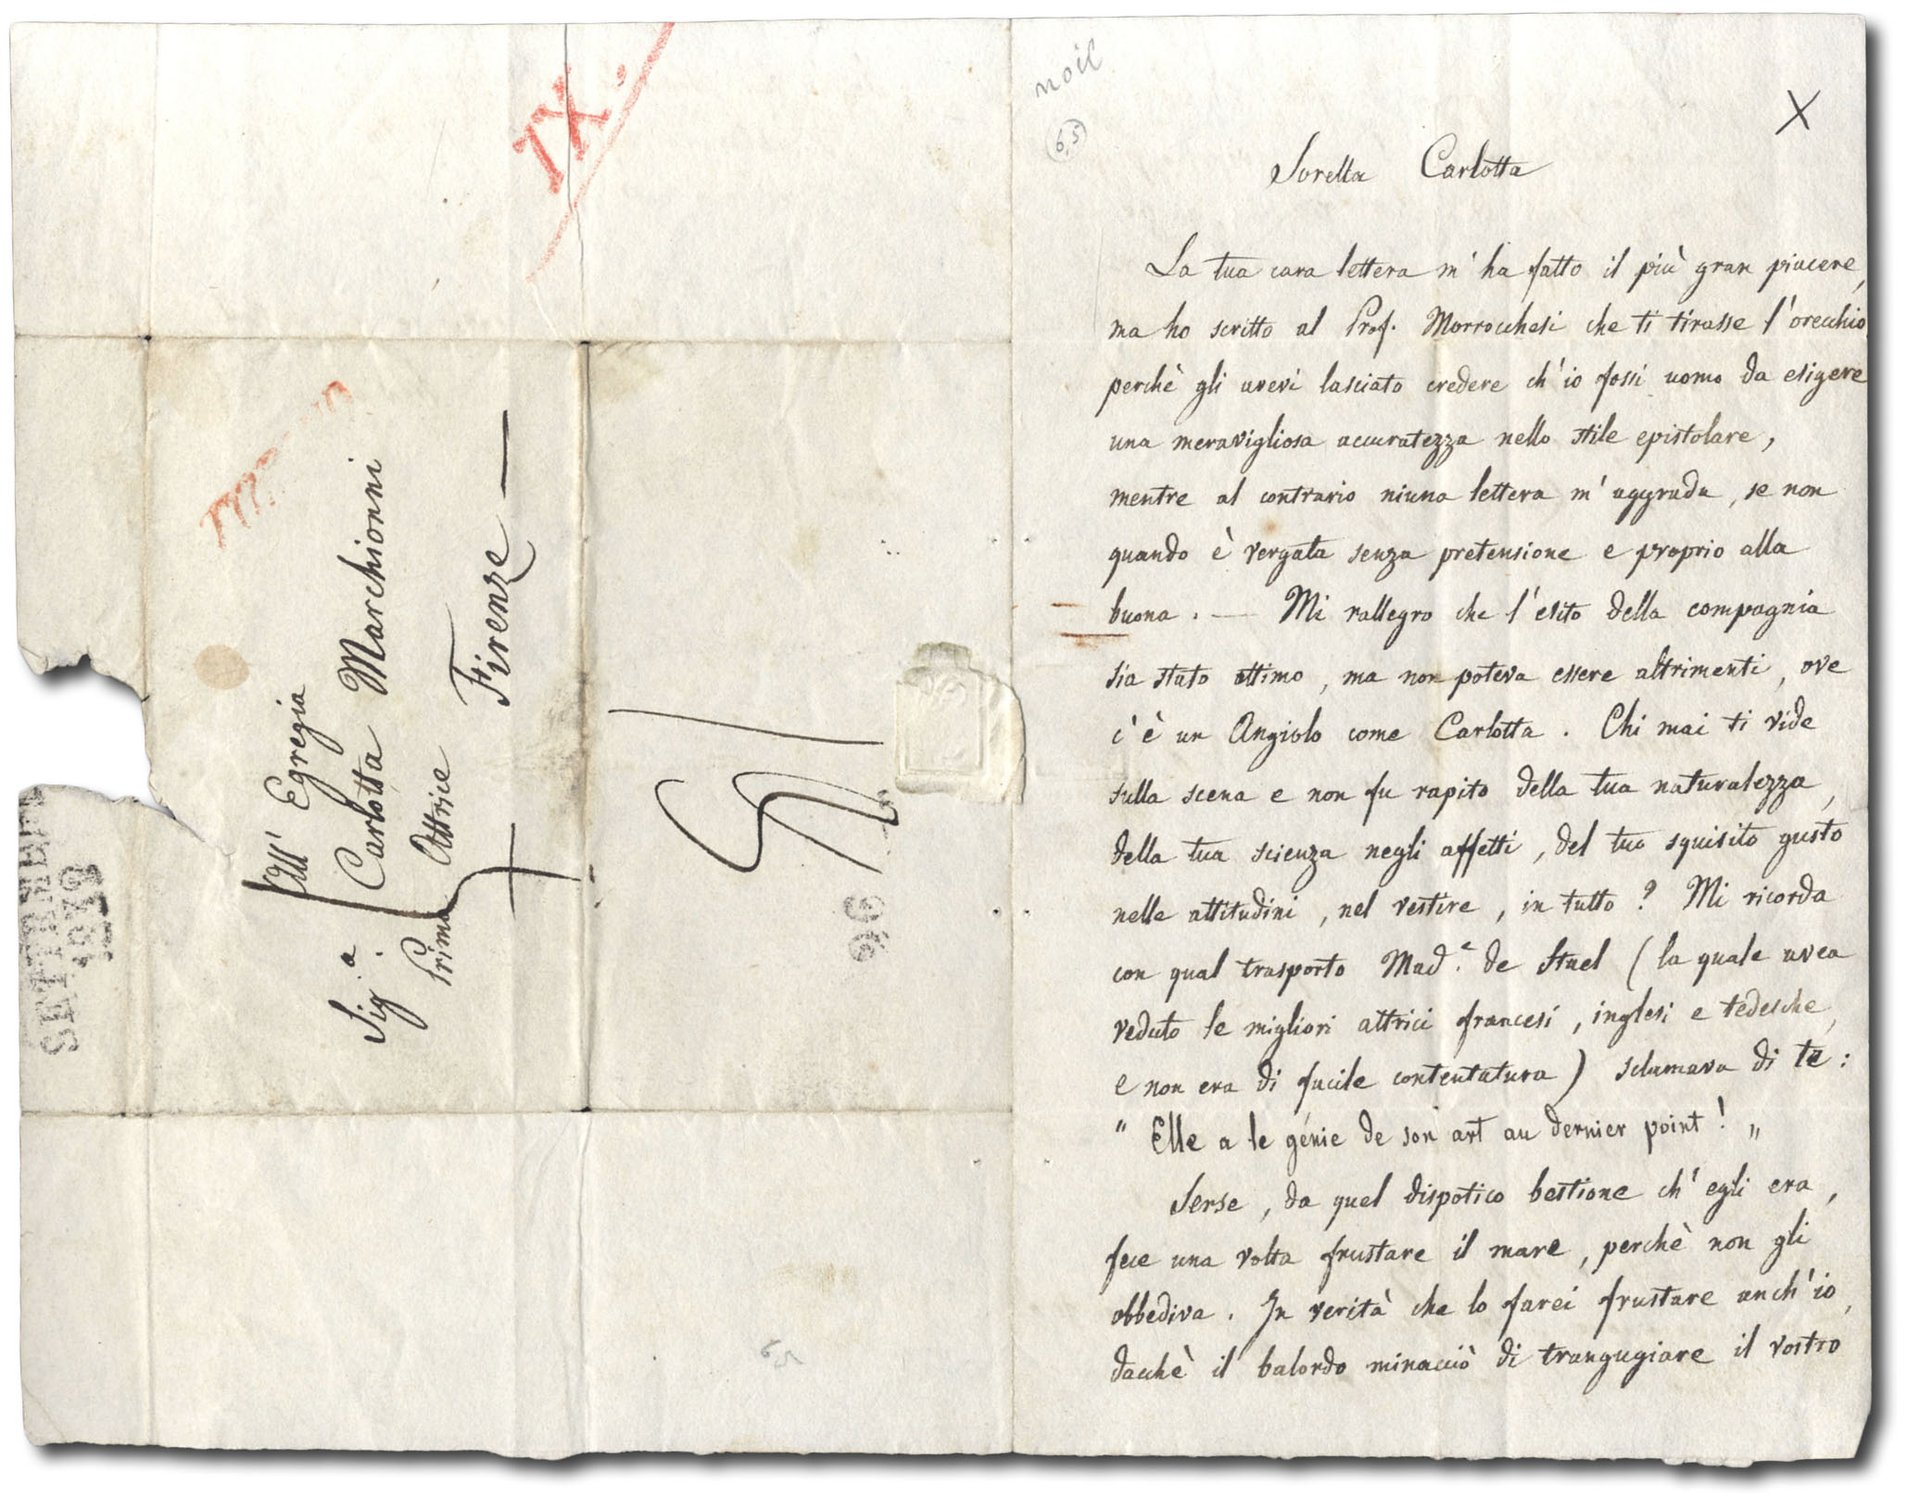 IX.
All' Egregia
Sig.a Carlotta Marchionni
Prima Attrice
Firenze
SETTEMBRE
96
6,5
noil
6,5
X
Sorella Carlotta
La tua cara lettera m'ha fatto il più gran piacere,
ma ho scritto al Prof. Morrochesi che ti tirasse l'orecchio
perchè gli avevi lasciato credere ch'io fossi uomo da esigere
una meravigliosa accuratezza nello stile epistolare,
mentre al contrario niuna lettera m'aggrada, se non
quando è vergata senza pretensione e proprio alla
buona. — Mi rallegro che l'esito della compagnia
sia stato ottimo, ma non poteva essere altrimenti, ove
c'è un Angiolo come Carlotta. Chi mai ti vide
sulla scena e non fu rapito della tua naturalezza,
della tua scienza negli affetti, del tuo squisito gusto
nelle attitudini, nel vestire, in tutto? Mi ricorda
con qual trasporto Mad.e de Stael (la quale avea
veduto le migliori attrici francesi, inglesi e tedesche,
e non era di facile contentatura) sclamava di te:
" Elle a le génie de son art au dernier point! „
Serse, da quel dispotico bestione ch'egli era,
fece una volta frustare il mare, perchè non gli
obbediva. In verità che lo farei frustare anch'io,
dacchè il balordo minacciò di trangugiare il vostro